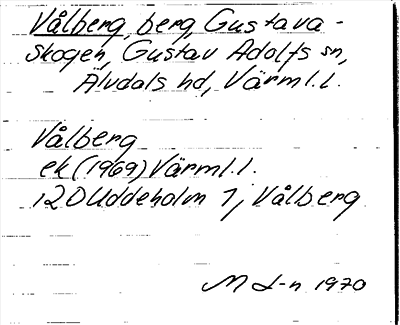 Vålberg, berg, Gustava-
skogen, Gustav Adolfs sn,
Älvdals hd, Värml. l.
Vålberg
ek (1969) Värml. l.
12D Uddeholm 1, Vålberg
M L-n 1970